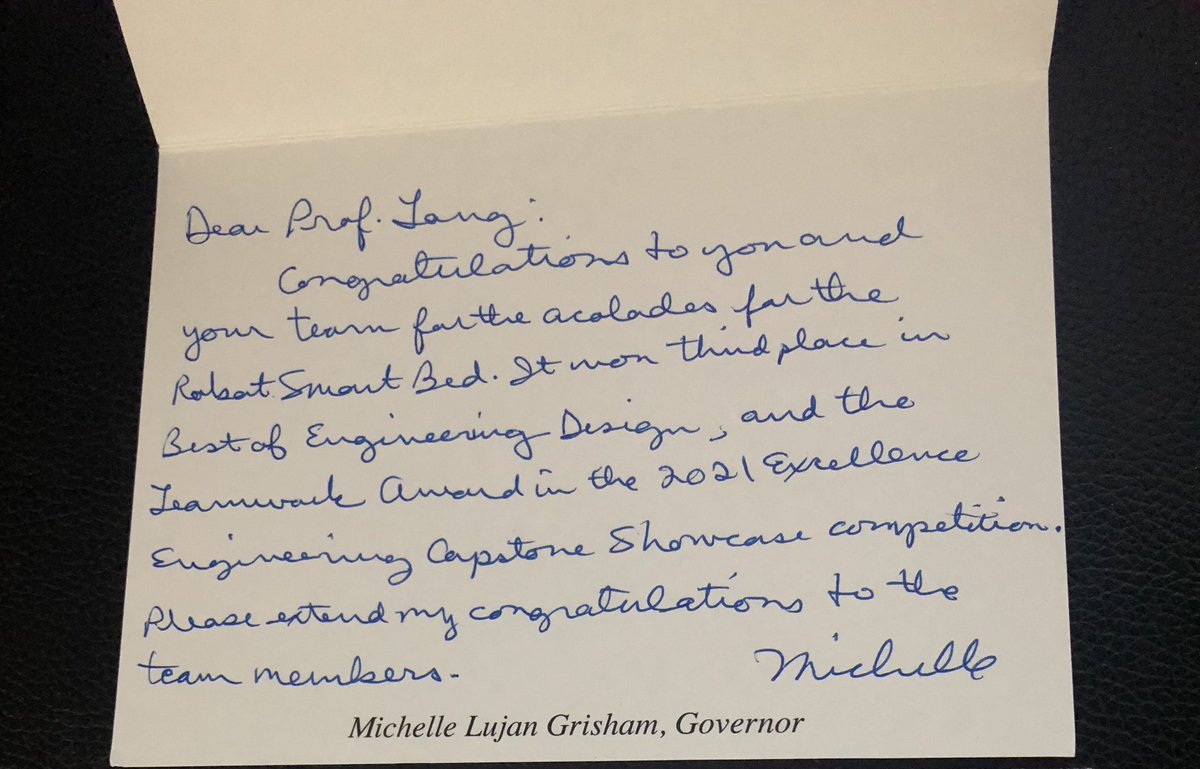 Dear Prof. Tang:
Congratulations to you and
your team for the acolades for the
Robot Smart Bed. It won third place in
Best of Engineering Design, and the
Teamwork Award in the 2021 Excellence
Engineering Capstone Showcase competition.
Please extend my congratulations to the
team members.
Michelle
Michelle Lujan Grisham, Governor